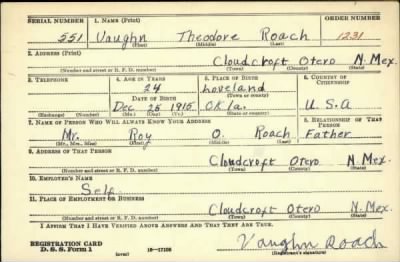 SERIAL NUMBER 1. NAME (Print) ORDER NUMBER
551 Vaughn Theodore Roach 1231
(First) (Middle) (Last)
2. ADDRESS (Print)
Cloudcroft Otero N. Mex.
(Number and street or R. F. D. number) (Town) (County) (State)
3. TELEPHONE 4. AGE IN YEARS 5. PLACE OF BIRTH 6. COUNTRY OF CITIZENSHIP
24 Loveland
DATE OF BIRTH (Town or county)
Dec 25 1915 Okla. U.S.A
(Exchange) (Number) (Mo.) (Day) (Yr.) (State or country)
7. NAME OF PERSON WHO WILL ALWAYS KNOW YOUR ADDRESS 8. RELATIONSHIP OF THAT PERSON
Mr. Roy O. Roach Father
(Mr., Mrs., Miss) (First) (Middle) (Last)
9. ADDRESS OF THAT PERSON
Cloudcroft Otero N. Mex.
(Number and street or R. F. D. number) (Town) (County) (State)
10. EMPLOYER'S NAME
Self
11. PLACE OF EMPLOYMENT OR BUSINESS
Cloudcroft Otero N. Mex.
(Number and street or R. F. D. number) (Town) (County) (State)
I AFFIRM THAT I HAVE VERIFIED ABOVE ANSWERS AND THAT THEY ARE TRUE.
REGISTRATION CARD Vaughn Roach
D. S. S. Form 1 (over) 16-17105 (Registrant's signature)